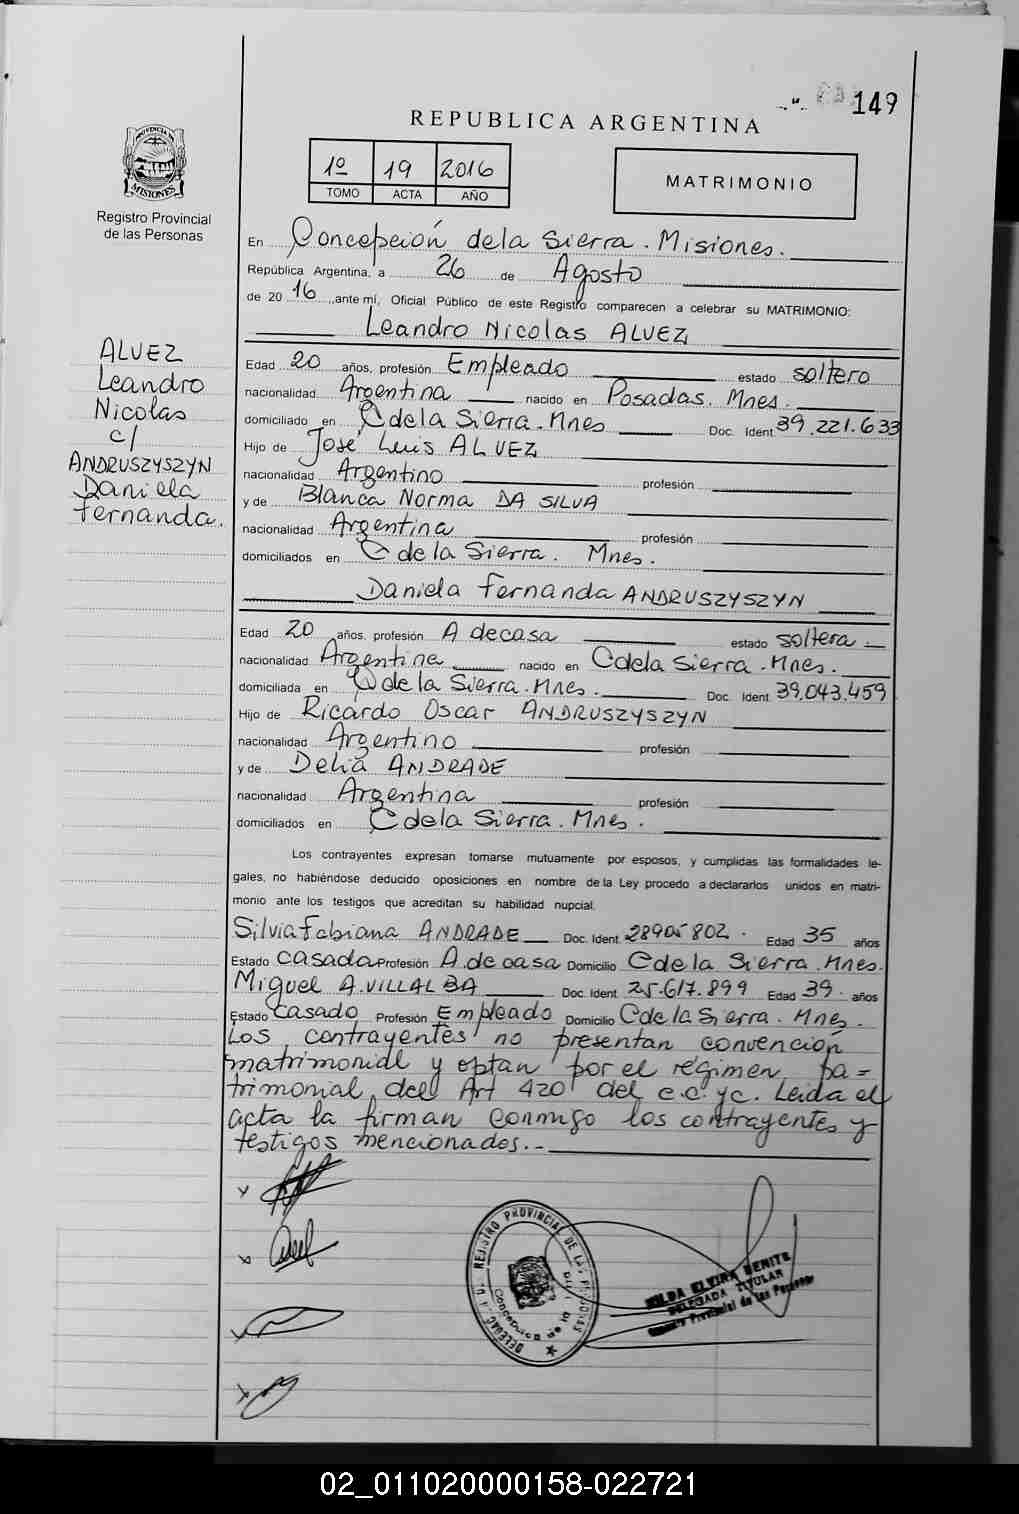 149
REPUBLICA ARGENTINA
1º 19 2016
TOMO ACTA AÑO
MATRIMONIO
PROVINCIA DE
MISIONES
Registro Provincial
de las Personas
En Concepción de la Sierra. Misiones.
República Argentina, a 26 de Agosto
de 20 16, ante mí, Oficial Público de este Registro comparecen a celebrar su MATRIMONIO:
Leandro Nicolas ALVEZ
ALVEZ
Leandro
Nicolas
c/
ANDRUSZYSZYN
Daniela
Fernanda.
Edad 20 años, profesión Empleado estado soltero
nacionalidad Argentina nacido en Posadas. Mnes.
domiciliado en C de la Sierra. Mnes Doc. Ident 39.221.633
Hijo de José Luis ALVEZ
nacionalidad Argentino profesión
y de Blanca Norma DA SILVA
nacionalidad Argentina profesión
domiciliados en C de la Sierra. Mnes.
Daniela Fernanda ANDRUSZYSZYN
Edad 20 años, profesión A de casa estado soltera
nacionalidad Argentina nacido en C de la Sierra. Mnes.
domiciliada en C de la Sierra. Mnes. Doc. Ident 39.043.459
Hijo de Ricardo Oscar ANDRUSZYSZYN
nacionalidad Argentino profesión
y de Delia ANDRADE
nacionalidad Argentina profesión
domiciliados en C de la Sierra. Mnes.
Los contrayentes expresan tomarse mutuamente por esposos, y cumplidas las formalidades le-
gales, no habiéndose deducido oposiciones en nombre de la Ley procedo a declararlos unidos en matri-
monio ante los testigos que acreditan su habilidad nupcial.
Silvia Fabiana ANDRADE Doc. Ident 28905802. Edad 35 años
Estado casada Profesión A. de casa Domicilio C de la Sierra. Mnes.
Miguel A. VILLALBA Doc. Ident 25.617.899 Edad 39. años
Estado casado Profesión Empleado Domicilio C de la Sierra. Mnes.
Los contrayentes no presentan convención
matrimonial y optan por el régimen pa=
trimonial del Art 420 del c.c. y c. Leida el
acta la firman conmigo los contrayentes y
testigos mencionados.-
REGISTRO PROVINCIAL DE LAS PERSONAS
Concepción de la
DELEGADA TITULAR
Registro Provincial de las Personas
02_011020000158-022721